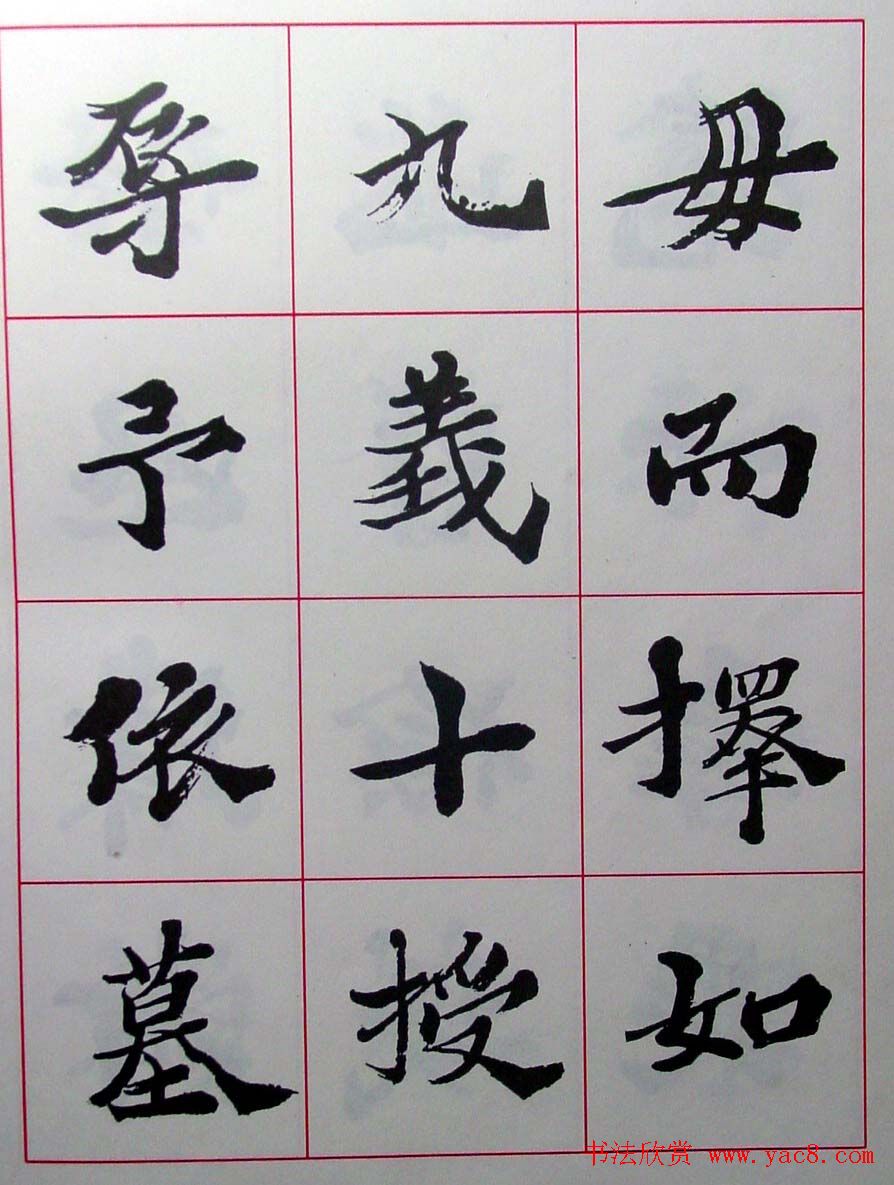 毋而擇如
九義十授
孕予依墓
书法欣赏 www.yac8.com